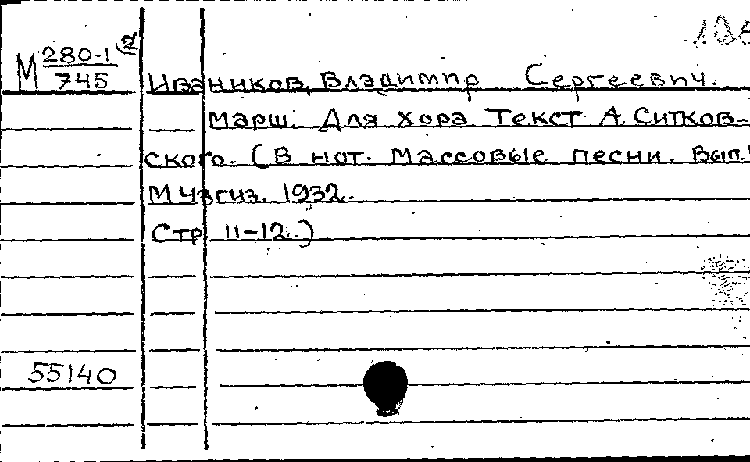 М 280-1
745
Иваников, Владимир Сергеевич.
Марш. Для хора Текст А. Ситков-
ского. (В нот. Массовые песни. Вып.
М Узгиз. 1932.
Стр 11-12.)
55140